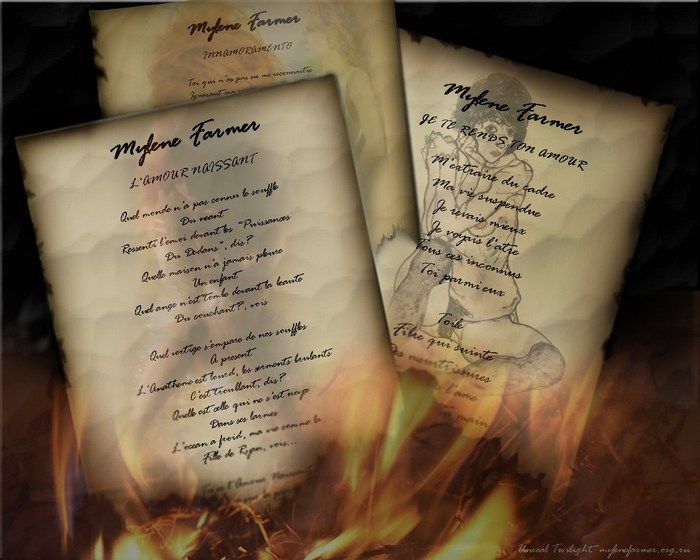 Mylene Farmer
INNAMORAMENTO
Toi qui n'as pas su me reconnaitre
Ignorant ma
Mylene Farmer
L'AMOUR NAISSANT
Quel monde n'a pas connu le souffle
Du neant
Ressenti l'emoi devant les "Puissances
Du Dedans", dis?
Quelle maison n'a jamais pleure
Un enfant
Quel ange n'est tombe devant la beaute
Du couchant?, vois
Quel vertige s'empare de nos souffles
A present
L'Anatheme est lourd, les serments brulants
C'est troullant, dis?
Quelle est celle qui ne s'est noyee
Dans ses larmes
L'ocean a froid, ma vie comme la
Fille de Ryan, vois...
l'Amour Naissant
Mylene Farmer
JE TE RENDS TON AMOUR
M'extraire du cadre
Ma vie suspendue
Je revais mieux
Je voyais l'atre
Tous ces inconnus
Toi parmi eux
Toile
Fibre qui suinte
Des meurtrissures
l'ame
main
Unreal Twilight mylenefarmer.org.ru